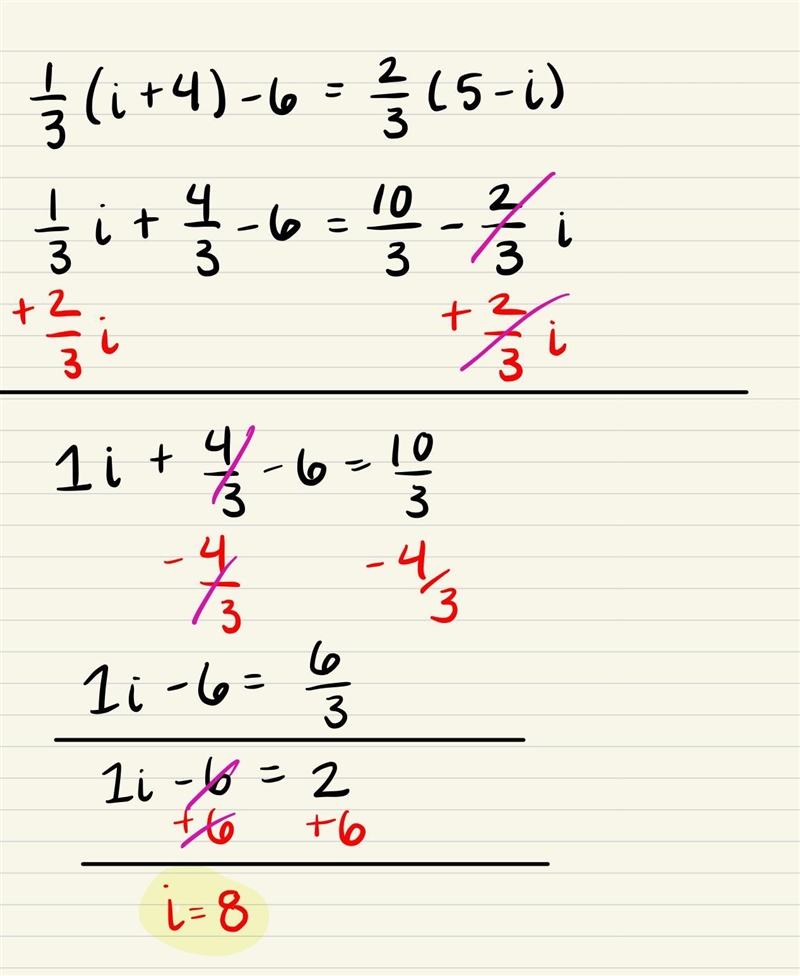 1/3 (i + 4) - 6 = 2/3 (5 - i)
1/3 i + 4/3 - 6 = 10/3 - 2/3 i
+ 2/3 i + 2/3 i
1i + 4/3 - 6 = 10/3
- 4/3 - 4/3
1i - 6 = 6/3
1i - 6 = 2
+6 +6
i = 8